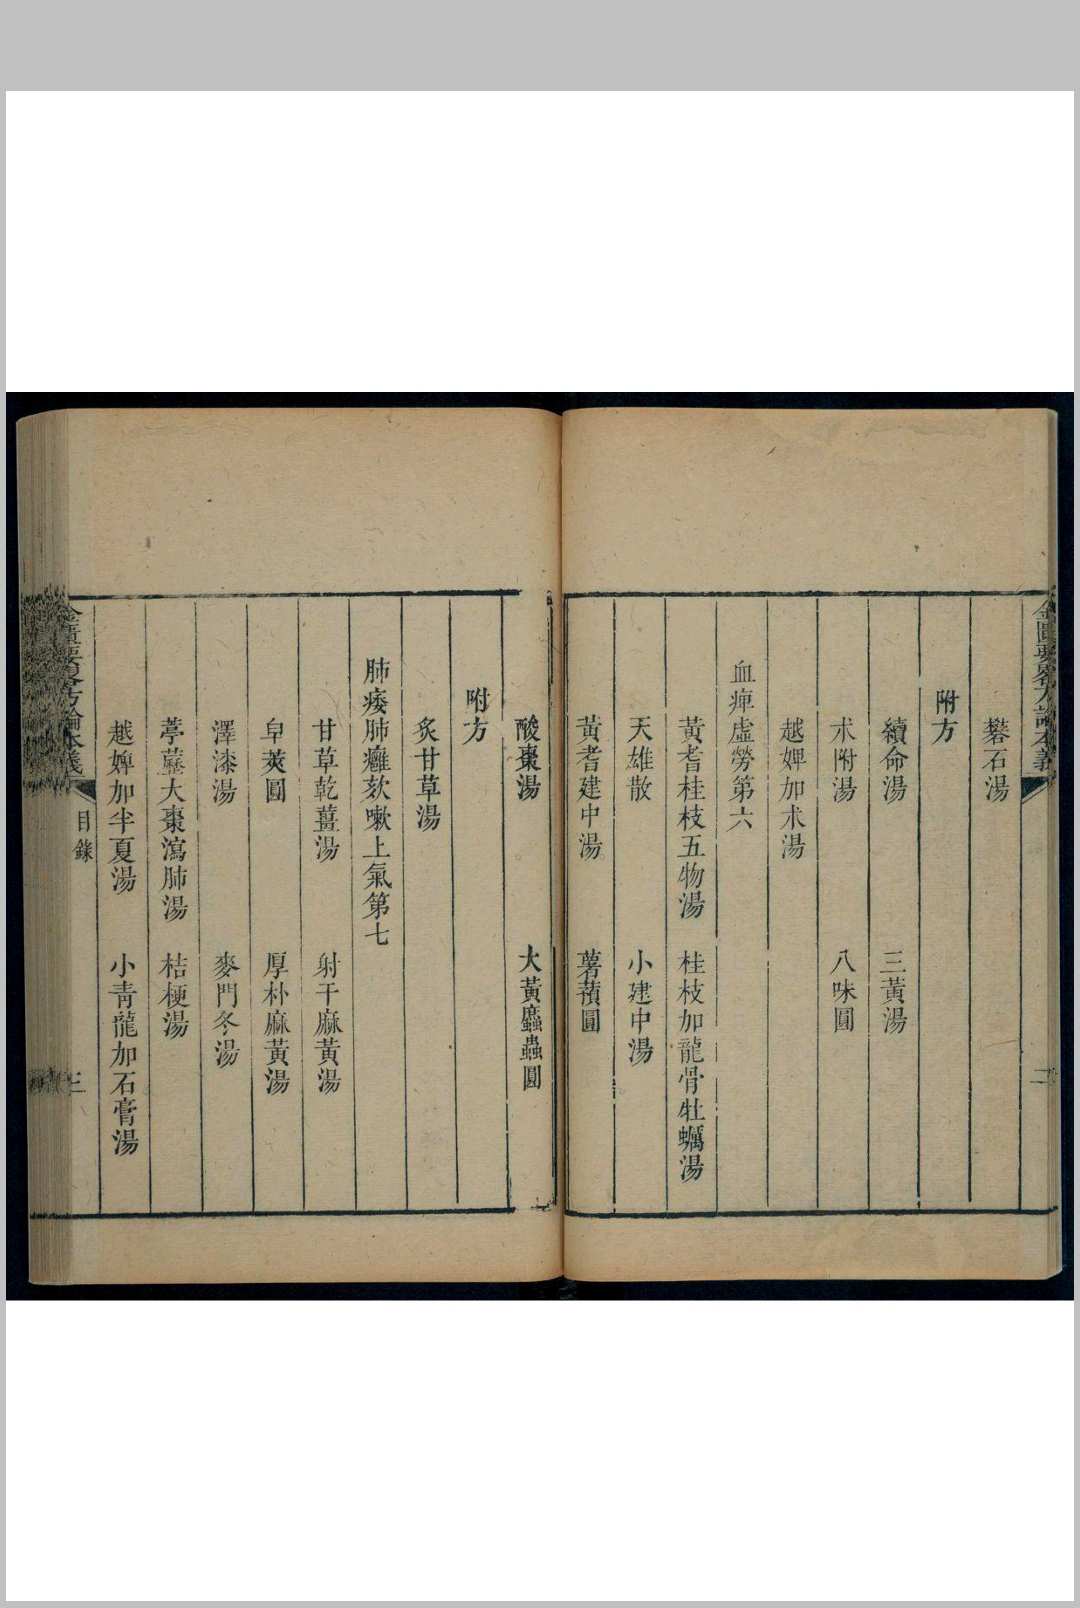 金匱要略方論本義
二
礬石湯
附方
續命湯　三黃湯
朮附湯　八味圓
越婢加朮湯
血痺虛勞第六
黃耆桂枝五物湯　桂枝加龍骨牡蠣湯
天雄散　小建中湯
黃耆建中湯　薯蕷圓
酸棗湯　大黃䗪蟲圓
附方
炙甘草湯
肺痿肺癰欬嗽上氣第七
甘草乾薑湯　射干麻黃湯
皁莢圓　厚朴麻黃湯
澤漆湯　麥門冬湯
葶藶大棗瀉肺湯　桔梗湯
越婢加半夏湯　小青龍加石膏湯
金匱要略方論本義
目錄
三